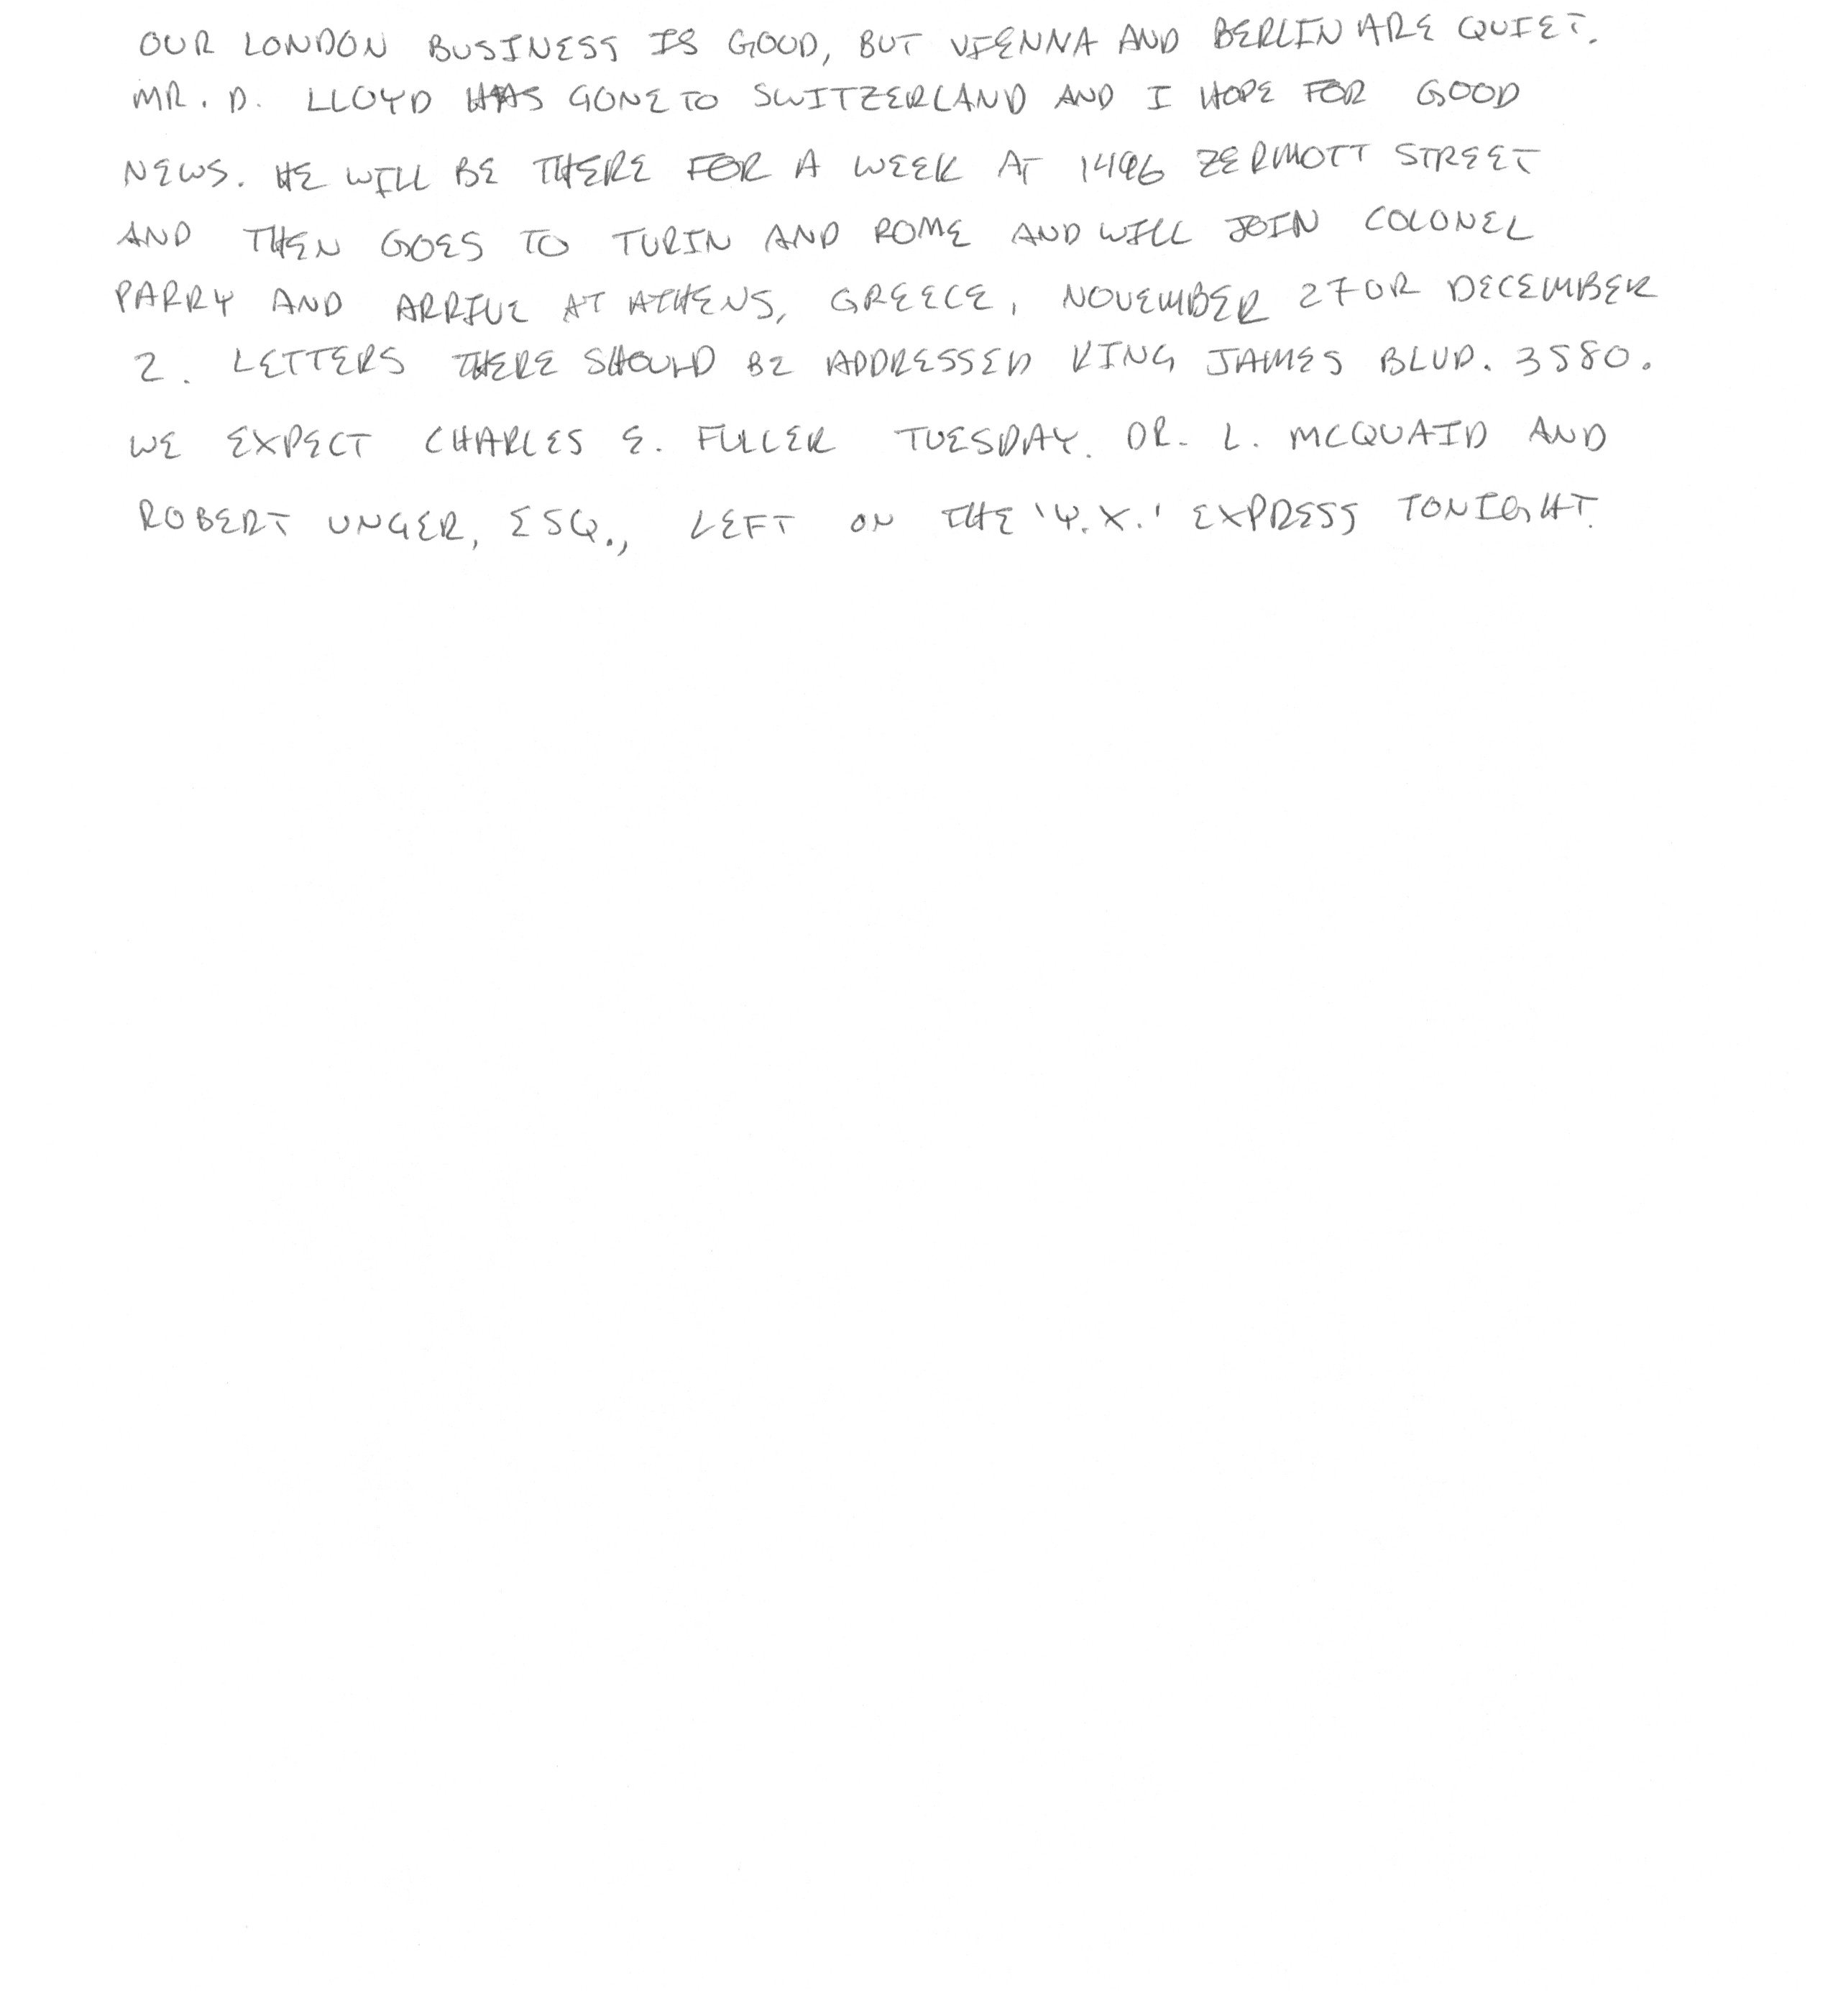 OUR LONDON BUSINESS IS GOOD, BUT VIENNA AND BERLIN ARE QUIET.
MR. D. LLOYD HAS GONE TO SWITZERLAND AND I HOPE FOR GOOD
NEWS. HE WILL BE THERE FOR A WEEK AT 1496 ZERMOTT STREET
AND THEN GOES TO TURIN AND ROME AND WILL JOIN COLONEL
PARRY AND ARRIVE AT ATHENS, GREECE, NOVEMBER 27 OR DECEMBER
2. LETTERS THERE SHOULD BE ADDRESSED KING JAMES BLVD. 3580.
WE EXPECT CHARLES E. FULLER TUESDAY. DR. L. MCQUAID AND
ROBERT UNGER, ESQ., LEFT ON THE 'Y.X.' EXPRESS TONIGHT.